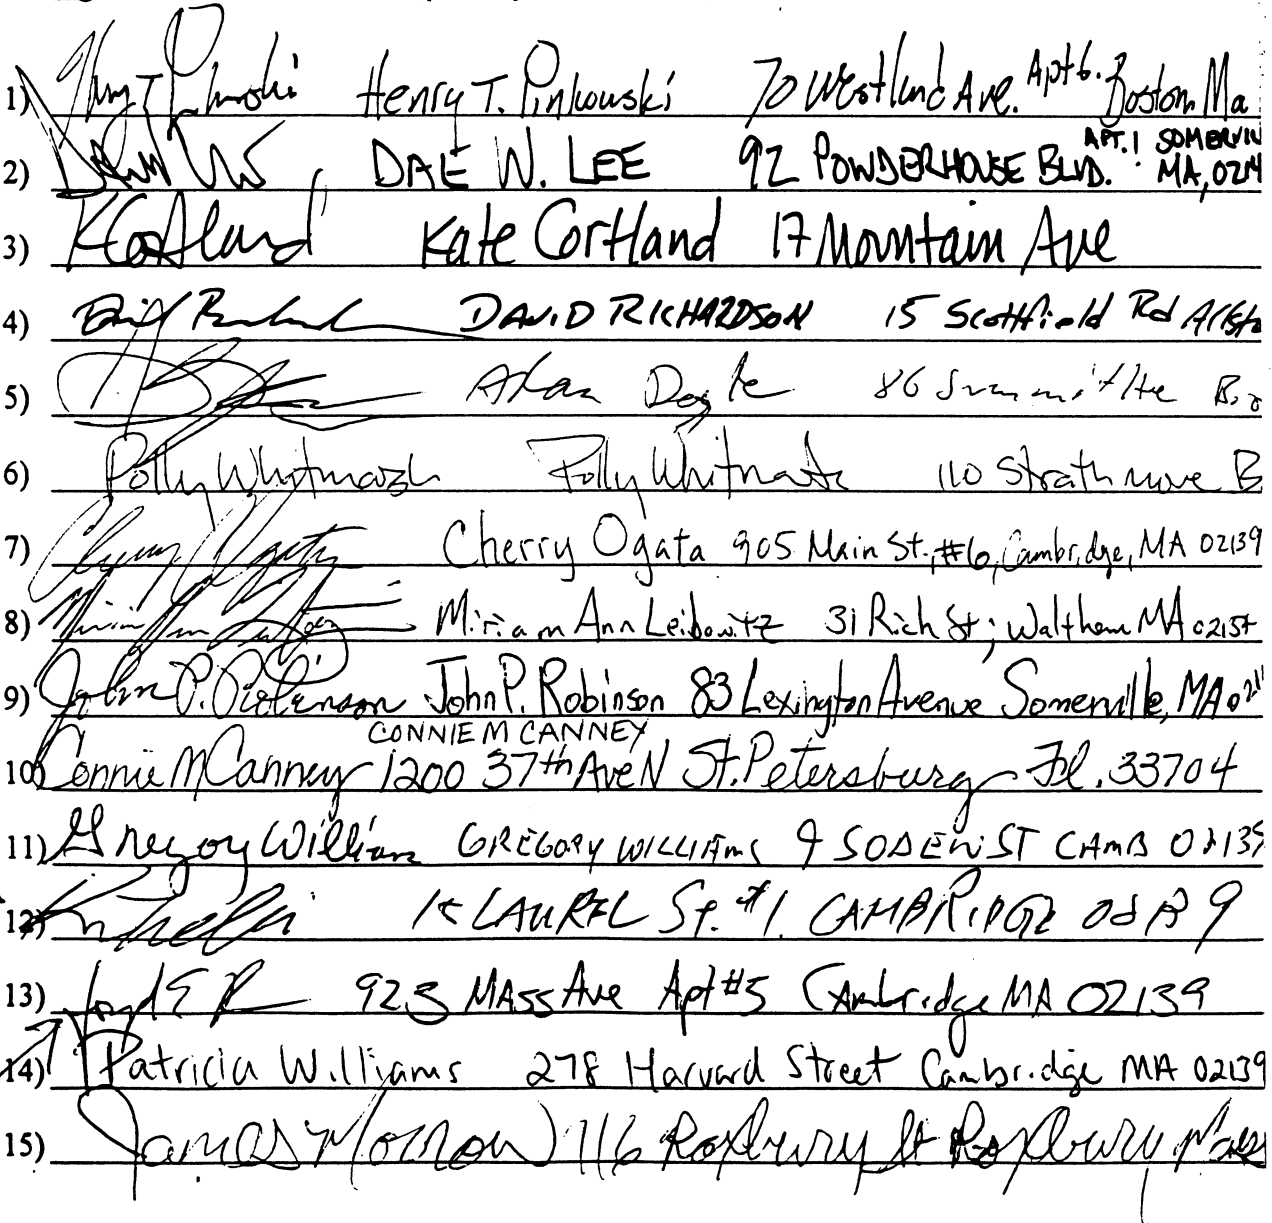 1) Henry T. Pinkowski Henry T. Pinkowski 70 Westland Ave. Apt 6. Boston Ma
2) DALE W. LEE 92 POWDERHOUSE BLVD. APT. 1 SOMERVIL MA, 0214
3) K Cortland Kate Cortland 17 Mountain Ave
4) DAVID RICHARDSON 15 Scottfield Rd Allsto
5) Doyle 86 Summit Ave Bro
6) Polly Whitmarsh Polly Whitmarsh 110 Strathmore B
7) Cherry Ogata Cherry Ogata 905 Main St., #6, Cambridge, MA 02139
8) Miriam Ann Leibowitz Miriam Ann Leibowitz 31 Rich St; Waltham MA 0215
9) John P. Robinson John P. Robinson 83 Lexington Avenue Somerville, MA 021
CONNIE MCANNEY
10) Connie McCanney 1200 37th Ave N St. Petersburg Fl. 33704
11) Gregory William GREGORY WILLIAMS 9 SODEN ST CAMB 02139
12) LAUREL St. #1. CAMBRIDGE 02139
13) 923 MASS Ave Apt #5 Cambridge MA 02139
14) Patricia Williams 278 Harvard Street Cambridge MA 02139
15) James Morrow 116 Roxbury St Roxbury Mass